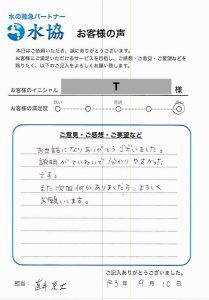 水の救急パートナー
水協 お客様の声
本日はご依頼いただき、誠にありがとうございます。
お客様に満足いただけるサービスを目指し、ご感想・ご意見・ご要望などを
賜りたく、以下のご記入をよろしくお願い致します。
お客様のイニシャル T 様
お客様の満足度 低い 普通 高い
ご意見・ご感想・ご要望など
お世話になりありがとうございました。
説明がていねいで分かりやすかった
です。
また次回何かありましたら、よろしく
お願いします。
ご記入ありがとうございました。
担当: R3年 9月 10日